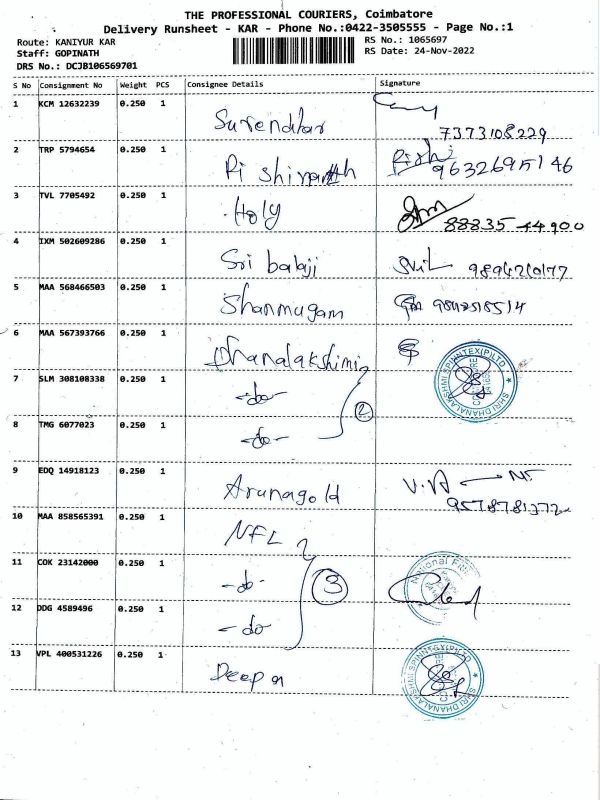 THE PROFESSIONAL COURIERS, Coimbatore
Delivery Runsheet - KAR - Phone No.:0422-3505555 - Page No.:1
Route: KANIYUR KAR
Staff: GOPINATH
DRS No.: DCJB106569701
RS No.: 1065697
RS Date: 24-Nov-2022
S No Consignment No Weight PCS Consignee Details Signature
1 KCM 12632239 0.250 1 Surendhar
7373108229
2 TRP 5794654 0.250 1 Rishi
9632695146
3 TVL 7705492 0.250 1 Holy
88835 44900
4 IXM 502609286 0.250 1 Sri balaji
5 MAA 568466503 0.250 1 Shanmugam
6 MAA 567393766 0.250 1 Dhanalakshimi
SHRI DHANALAKSHMI SPINNTEX(P)LTD
7 SLM 308108338 0.250 1 -do-
2
8 TMG 6077023 0.250 1 -do-
9 EDQ 14918123 0.250 1 Arunagold V.A
10 MAA 858565391 0.250 1 NFL
11 COK 23142000 0.250 1 -do-
3
National
12 DDG 4589496 0.250 1 -do-
13 VPL 400531226 0.250 1 Deepa
SHRI DHANALAKSHMI SPINNTEX(P)LTD